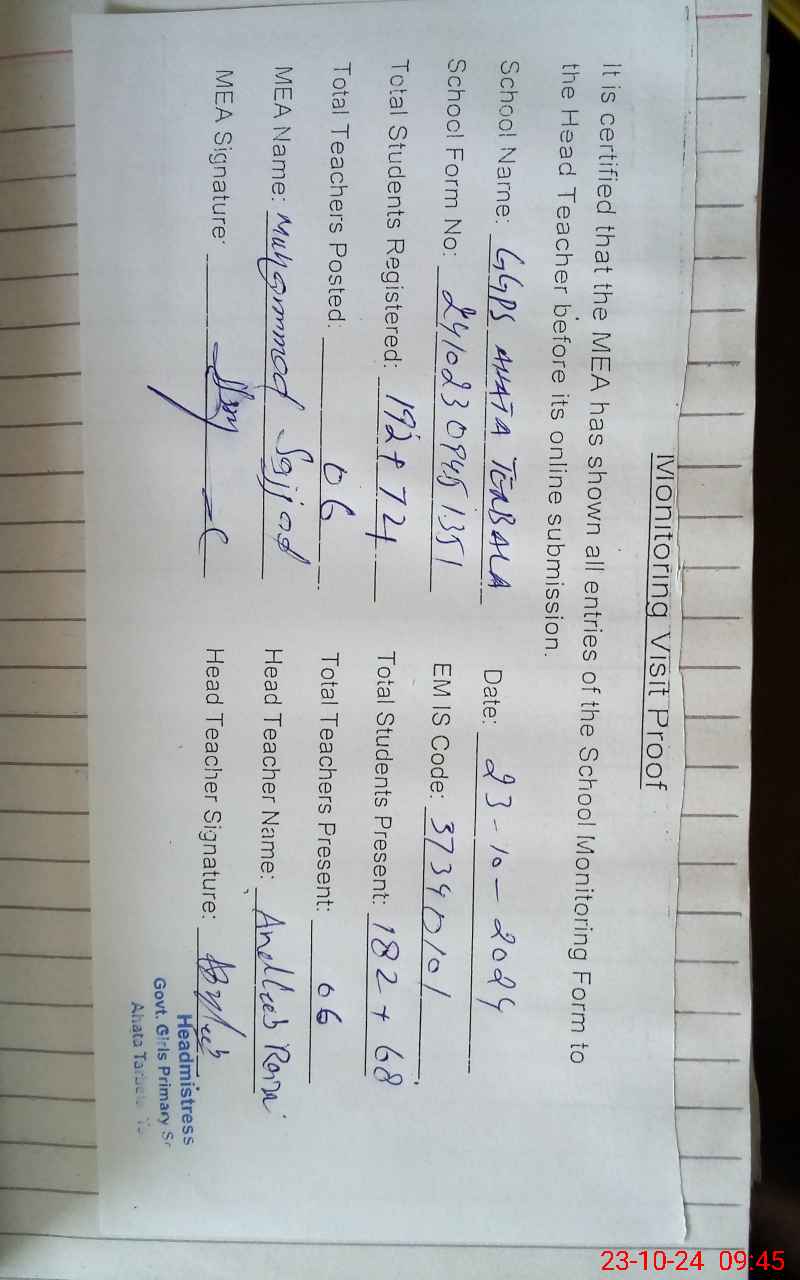 Monitoring Visit Proof
It is certified that the MEA has shown all entries of the School Monitoring Form to
the Head Teacher before its online submission.
School Name: GGPS AHATA TERBALA Date: 23-10-2024
School Form No: 24102309451351 EMIS Code: 37340101
Total Students Registered: 192+72 Total Students Present: 182+68
Total Teachers Posted: 06 Total Teachers Present: 06
MEA Name: Muhammad Sajjad Head Teacher Name: Andleeb Raza
MEA Signature: Head Teacher Signature:
Headmistress
Govt. Girls Primary
Ahata
23-10-24 09:45